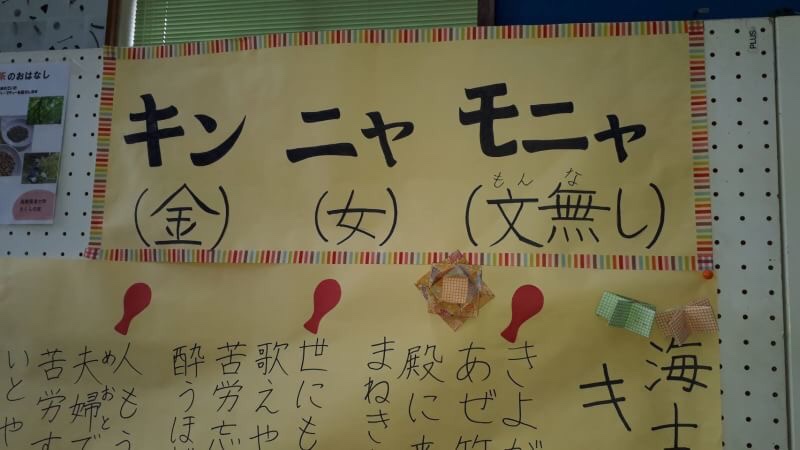 キン ニャ モニャ
(金) (女) (文無し)
もん な
海士
キ
きよが
あぜ
殿に来
まねき
世にも
歌えや
苦労忘
酔うほ
人もう
夫婦で
めおと
苦労す
いとや
茶のおはなし
PLUS